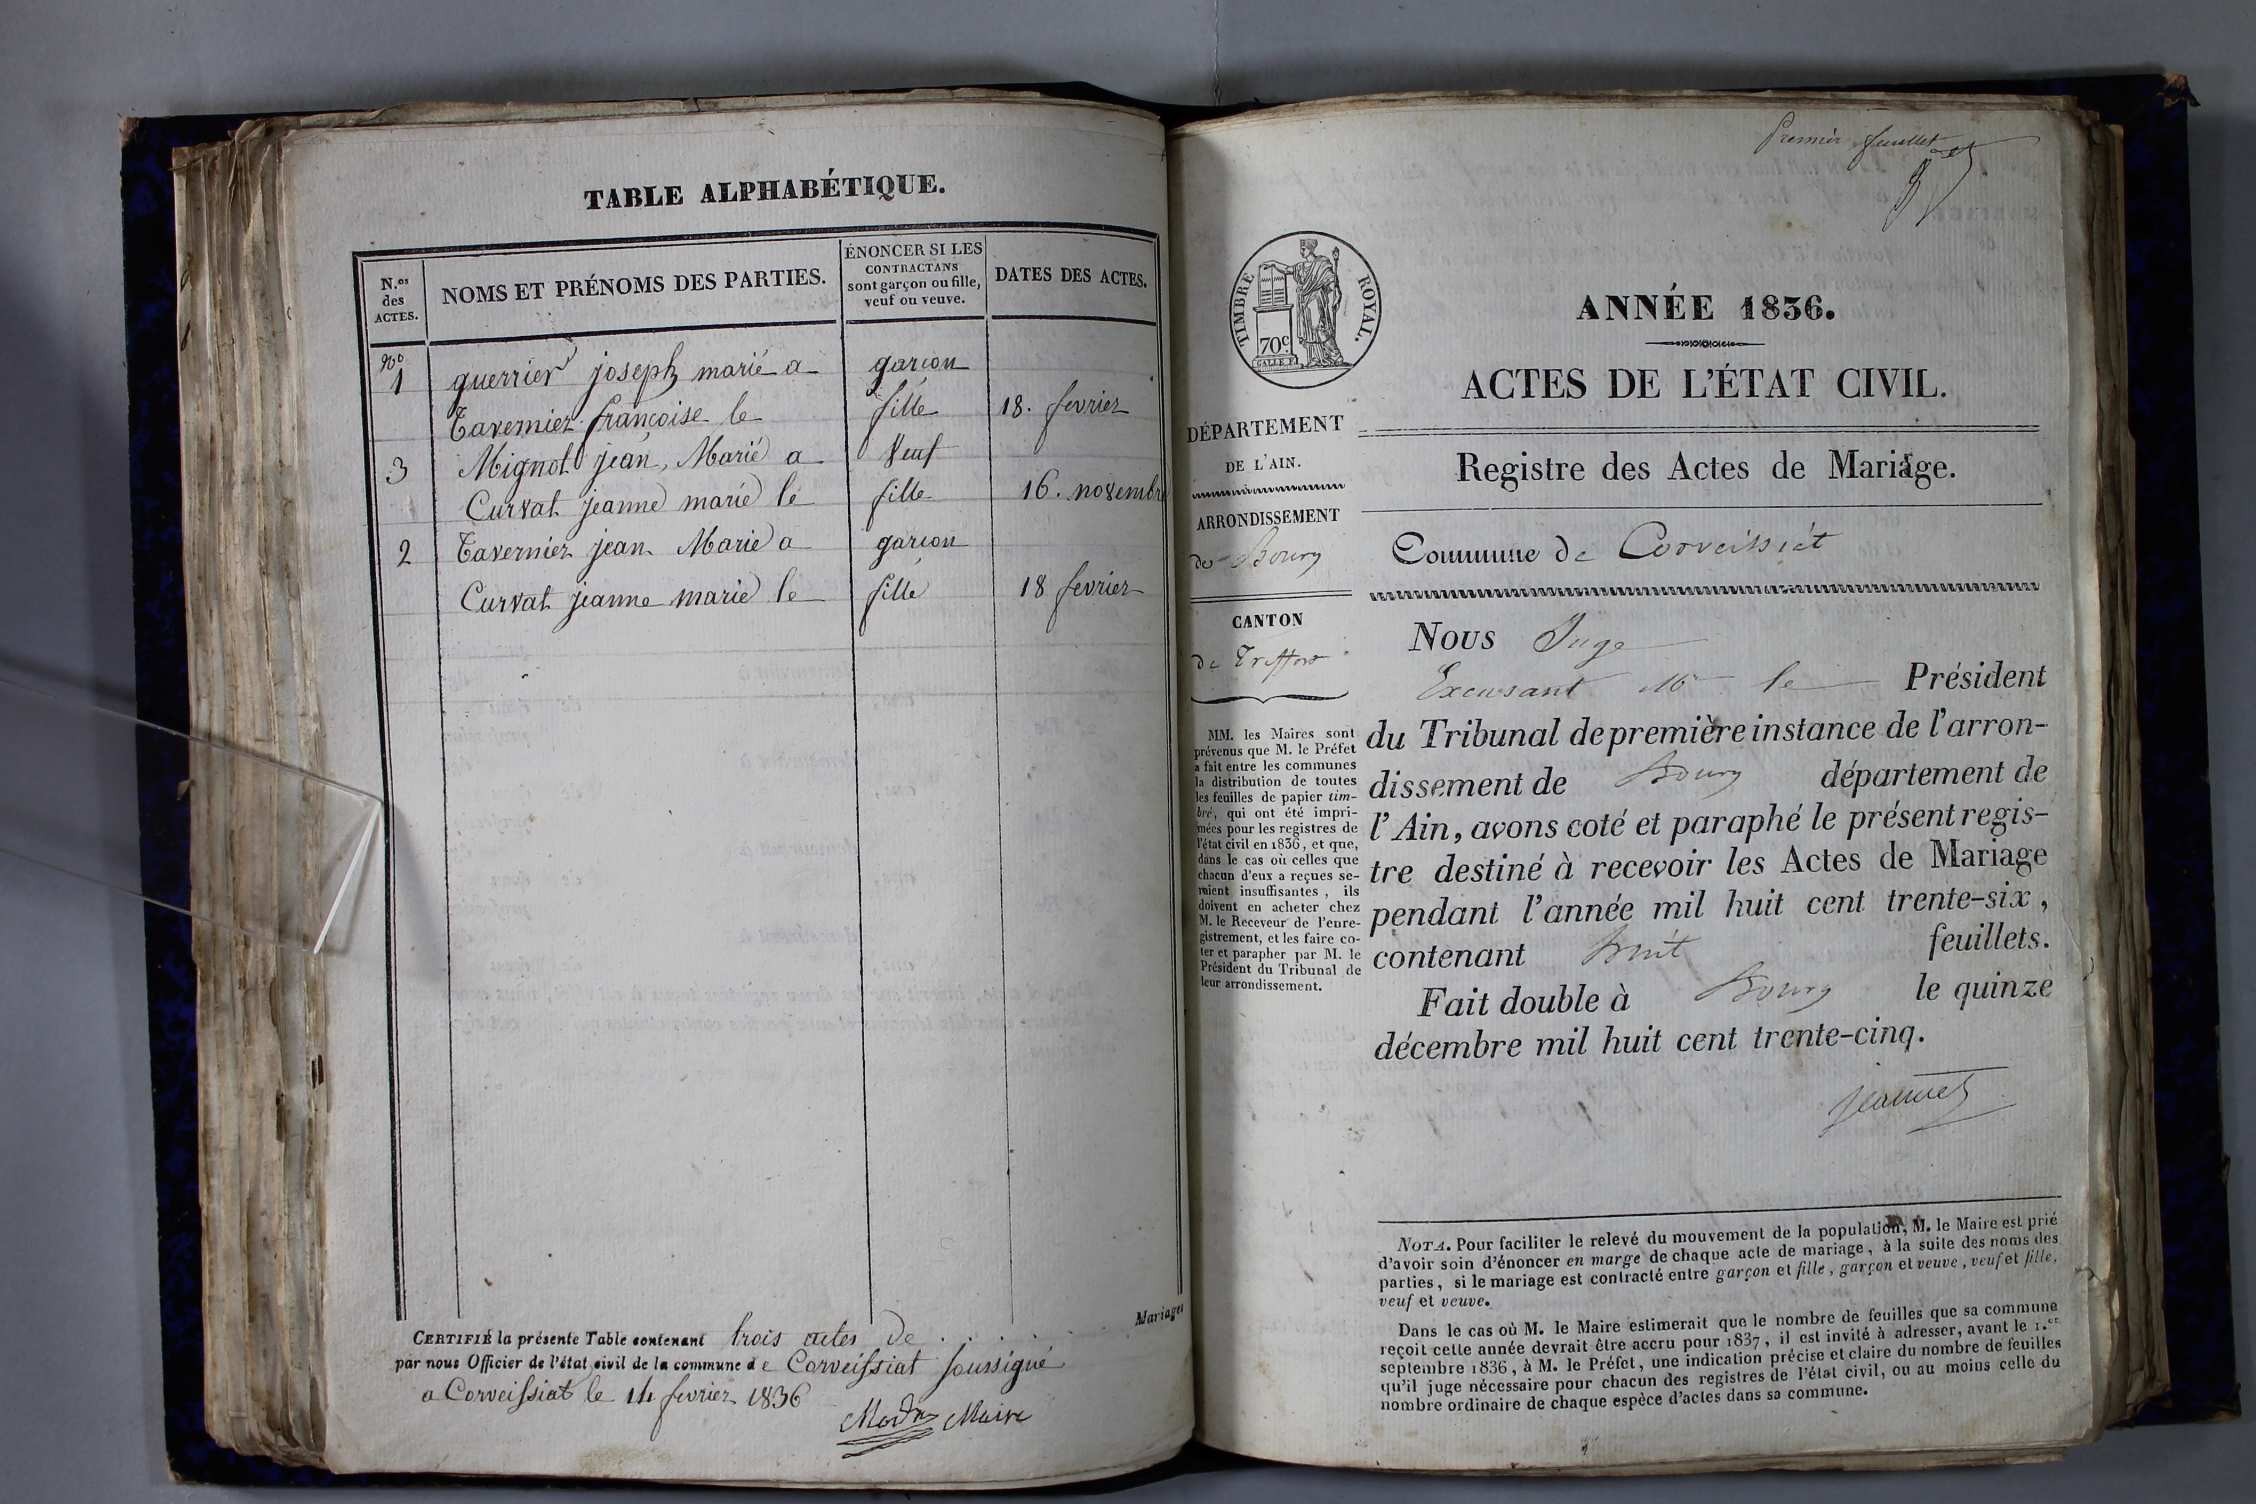 TABLE ALPHABÉTIQUE.
N.os des ACTES.
NOMS ET PRÉNOMS DES PARTIES.
ÉNONCER SI LES CONTRACTANS sont garçon ou fille, veuf ou veuve.
DATES DES ACTES.
No 1 guerrier joseph marié a garcon
Tavernier françoise le fille 18. fevrier
3 Mignot jean, Marié a Veuf
Curvat jeanne marie le fille 16. novembre
2 Tavernier jean Marie a garcon
Curvat jeanne marie le fille 18 fevrier
CERTIFIÉ la présente Table contenant trois actes de . . . . . Mariages
par nous Officier de l'état civil de la commune de Corveissiat soussigné
a Corveissiat le 14 fevrier 1836
Maire
Premier feuillet
TIMBRE ROYAL.
70c
ANNÉE 1836.
ACTES DE L'ÉTAT CIVIL.
Registre des Actes de Mariage.
Commune de Corveissiat
DÉPARTEMENT
DE L'AIN.
ARRONDISSEMENT
de Bourg
CANTON
de Treffort
MM. les Maires sont
prévenus que M. le Préfet
a fait entre les communes
la distribution de toutes
les feuilles de papier tim-
bré, qui ont été impri-
mées pour les registres de
l'état civil en 1836, et que,
dans le cas où celles que
chacun d'eux a reçues se-
raient insuffisantes, ils
doivent en acheter chez
M. le Receveur de l'enre-
gistrement, et les faire co-
ter et parapher par M. le
Président du Tribunal de
leur arrondissement.
Nous Juge
Excusant Mr le Président
du Tribunal de première instance de l'arron-
dissement de Bourg département de
l'Ain, avons coté et paraphé le présent regis-
tre destiné à recevoir les Actes de Mariage
pendant l'année mil huit cent trente-six,
contenant huit feuillets.
Fait double à Bourg le quinze
décembre mil huit cent trente-cinq.
NOTA. Pour faciliter le relevé du mouvement de la population, M. le Maire est prié
d'avoir soin d'énoncer en marge de chaque acte de mariage, à la suite des noms des
parties, si le mariage est contracté entre garçon et fille, garçon et veuve, veuf et fille,
veuf et veuve.
Dans le cas où M. le Maire estimerait que le nombre de feuilles que sa commune
reçoit cette année devrait être accru pour 1837, il est invité à adresser, avant le 1.er
septembre 1836, à M. le Préfet, une indication précise et claire du nombre de feuilles
qu'il juge nécessaire pour chacun des registres de l'état civil, ou au moins celle du
nombre ordinaire de chaque espèce d'actes dans sa commune.